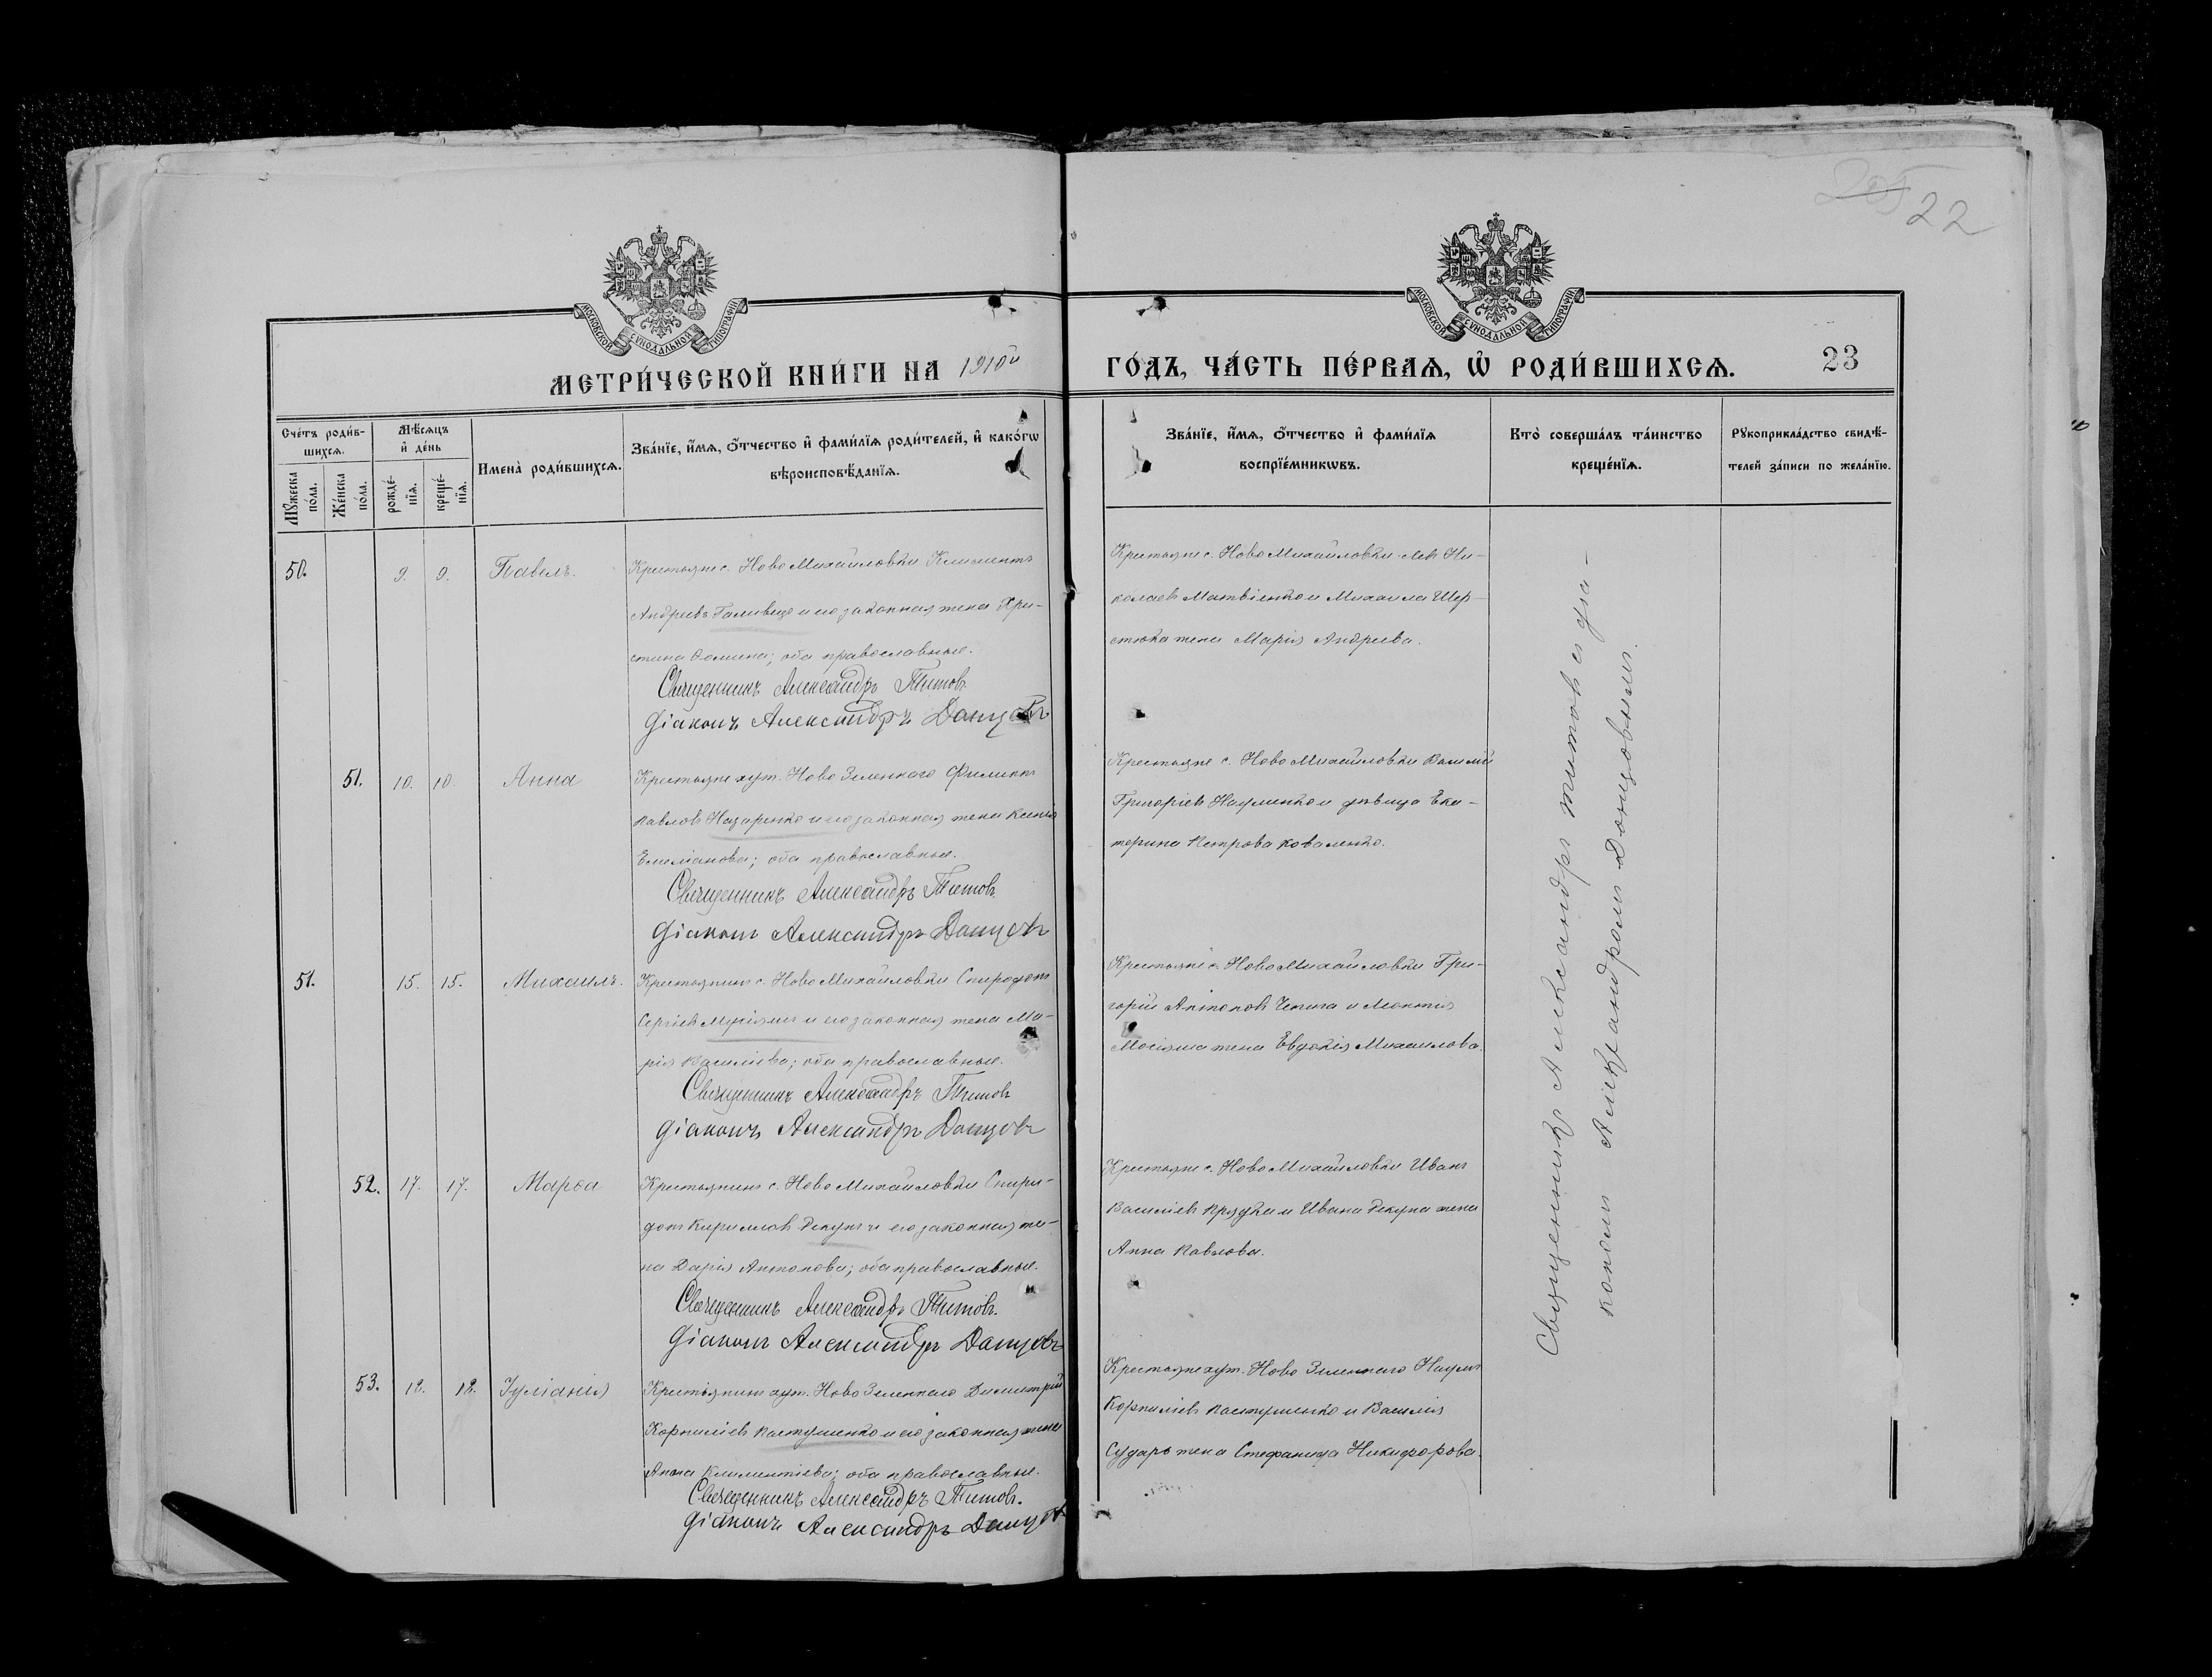 205 22
МОСКОВСКОЙ СѴНОДАЛЬНОЙ ТИПОГРАФІИ
МОСКОВСКОЙ СѴНОДАЛЬНОЙ ТИПОГРАФІИ
МЕТРИ́ЧЕСКОЙ КНИ́ГИ НА 1910й
ГО́ДЪ, ЧА́СТЬ ПЕ́РВАѦ, Ѡ҆ РОДИ́ВШИХСѦ. 23
Сче́тъ роди́в-
шихсѧ.
Мꙋжеска по́ла.
Же́нска по́ла.
Мѣ́сѧцъ
и҆ де́нь
рожде́-
нїѧ.
креще́-
нїѧ.
Имена̀ роди́вшихсѧ.
Зва́нїе, и҆́мѧ, ѻ҆́тчество и҆ фами́лїѧ роди́телей, и҆ како́гѡ
вѣроисповѣ́данїѧ.
Зва́нїе, и҆́мѧ, ѻ҆́тчество и҆ фами́лїѧ
воспрїе́мникѡвъ.
Кто̀ соверша́лъ та́инство
креще́нїѧ.
Рꙋкоприкла́дство свидѣ́-
телей за́писи по жела́нїю.
50. 9. 9. Павелъ.
Крестьяне с. Ново Михайловки Климентъ
Андреевъ и его законная жена Хри-
стина Фомина; оба православные.
Священникъ Александръ Титовъ
Діаконъ Александръ Донцовъ
Крестьяне с. Ново Михайловки Левъ Ни-
колаевъ Матвіенко и Михаила Шер-
стюка жена Марія Андреева.
51. 10. 10. Анна
Крестьяне хут. Ново Зеленкаго Филиппъ
Павловъ Назаренко и его законная жена Ксенія
Емеліанова; оба православные.
Священникъ Александръ Титовъ
Діаконъ Александръ Донцовъ
Крестьяне с. Ново Михайловки
Григоріевъ Науменко и дѣвица Ека-
терина Петрова Коваленко.
51. 15. 15. Михаилъ.
Крестьянинъ с. Ново Михайловки Спиридонъ
Сергіевъ и его законная жена Ма-
рія Васильева; оба православные.
Священникъ Александръ Титовъ
Діаконъ Александръ Донцовъ
Крестьяне с. Ново Михайловки Гри-
горій Антоновъ Чепига и Леонтія
жена Евдокія Михаилова.
52. 17. 17. Марѳа
Крестьянинъ с. Ново Михайловки Спири-
донъ Кирилловъ и его законная же-
на Дарія Антонова; оба православные.
Священникъ Александръ Титовъ.
Діаконъ Александръ Донцовъ
Крестьяне с. Ново Михайловки Иванъ
Василіевъ и Ивана жена
Анна Павлова.
53. 18. 18. Іуліанія
Крестьянинъ хут. Ново Зеленкаго Димитрій
Корниліевъ Пастушенко и его законная жена
Анна Климентіева; оба православные.
Священникъ Александръ Титовъ.
Діаконъ Александръ Донцовъ
Крестьяне хут. Ново Зеленкаго Наумъ
Корниліевъ Пастушенко и Василія
Сударь жена Стефанида Никифорова.
Священникъ Александръ Титовъ съ діа-
кономъ Александромъ Донцовымъ.